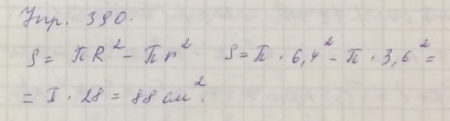 Упр. 390.
S = ПR² − Пr² S = П · 6,4² − П · 3,6² =
= П · 28 = 88 см².